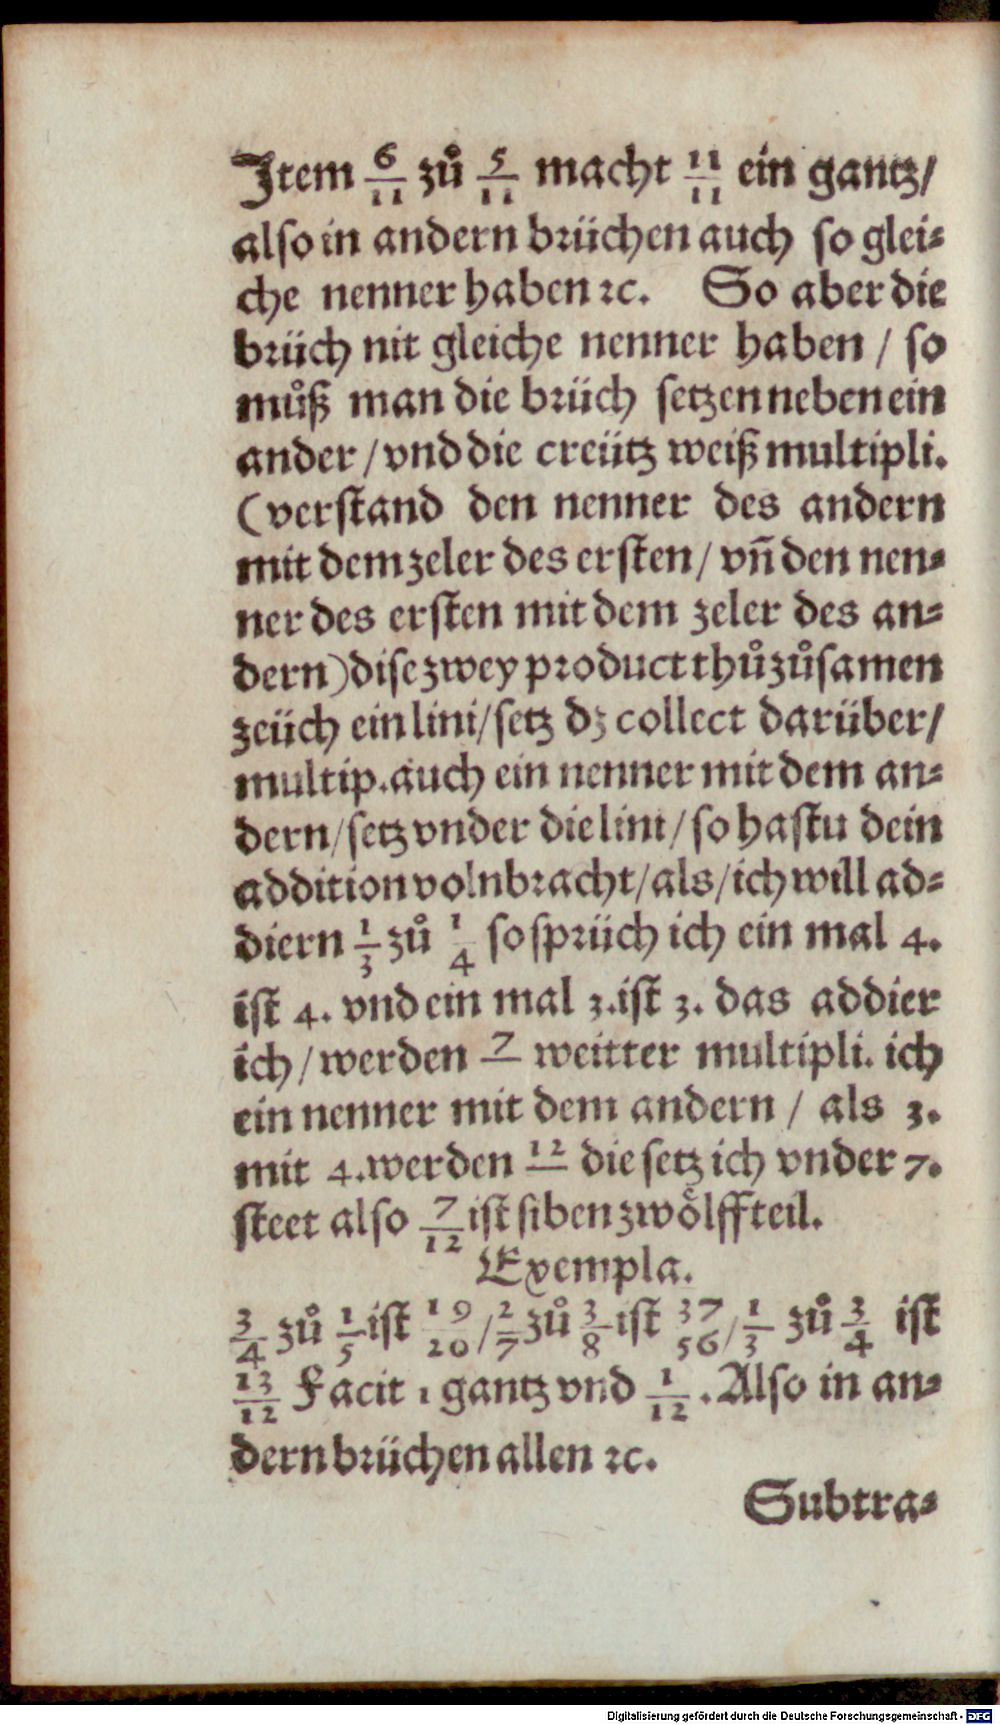 Item 6/11 zů 5/11 macht 11/11 ein gantz/
also in andern brüchen auch so glei⸗
che nenner haben ꝛc. So aber die
brüch nit gleiche nenner haben / so
můß man die brüch setzen neben ein
ander / vnd die creütz weiß multipli.
(verstand den nenner des andern
mit dem zeler des ersten / vñ den nen⸗
ner des ersten mit dem zeler des an⸗
dern) dise zwey product thů zůsamen
zeüch ein lini / setz dz collect darüber /
multip. auch ein nenner mit dem an⸗
dern / setz vnder die lini / so hastu dein
addition volnbracht / als / ich will ad⸗
diern 1/3 zů 1/4 so sprüch ich ein mal 4.
ist 4. vnd ein mal 3. ist 3. das addier
ich / werden 7/ weitter multipli. ich
ein nenner mit dem andern / als 3.
mit 4. werden 12/ die setz ich vnder 7.
steet also 7/12 ist siben zwoͤlffteil.
Exempla.
3/4 zů 1/5 ist 19/20 / 2/7 zů 3/8 ist 37/56 / 1/3 zů 3/4 ist
13/12 Facit 1 gantz vnd 1/12. Also in an⸗
dern brüchen allen ꝛc.
Subtra⸗
Digitalisierung gefördert durch die Deutsche Forschungsgemeinschaft - DFG